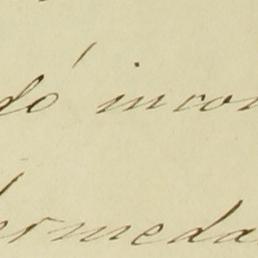 dó incon
ermeda